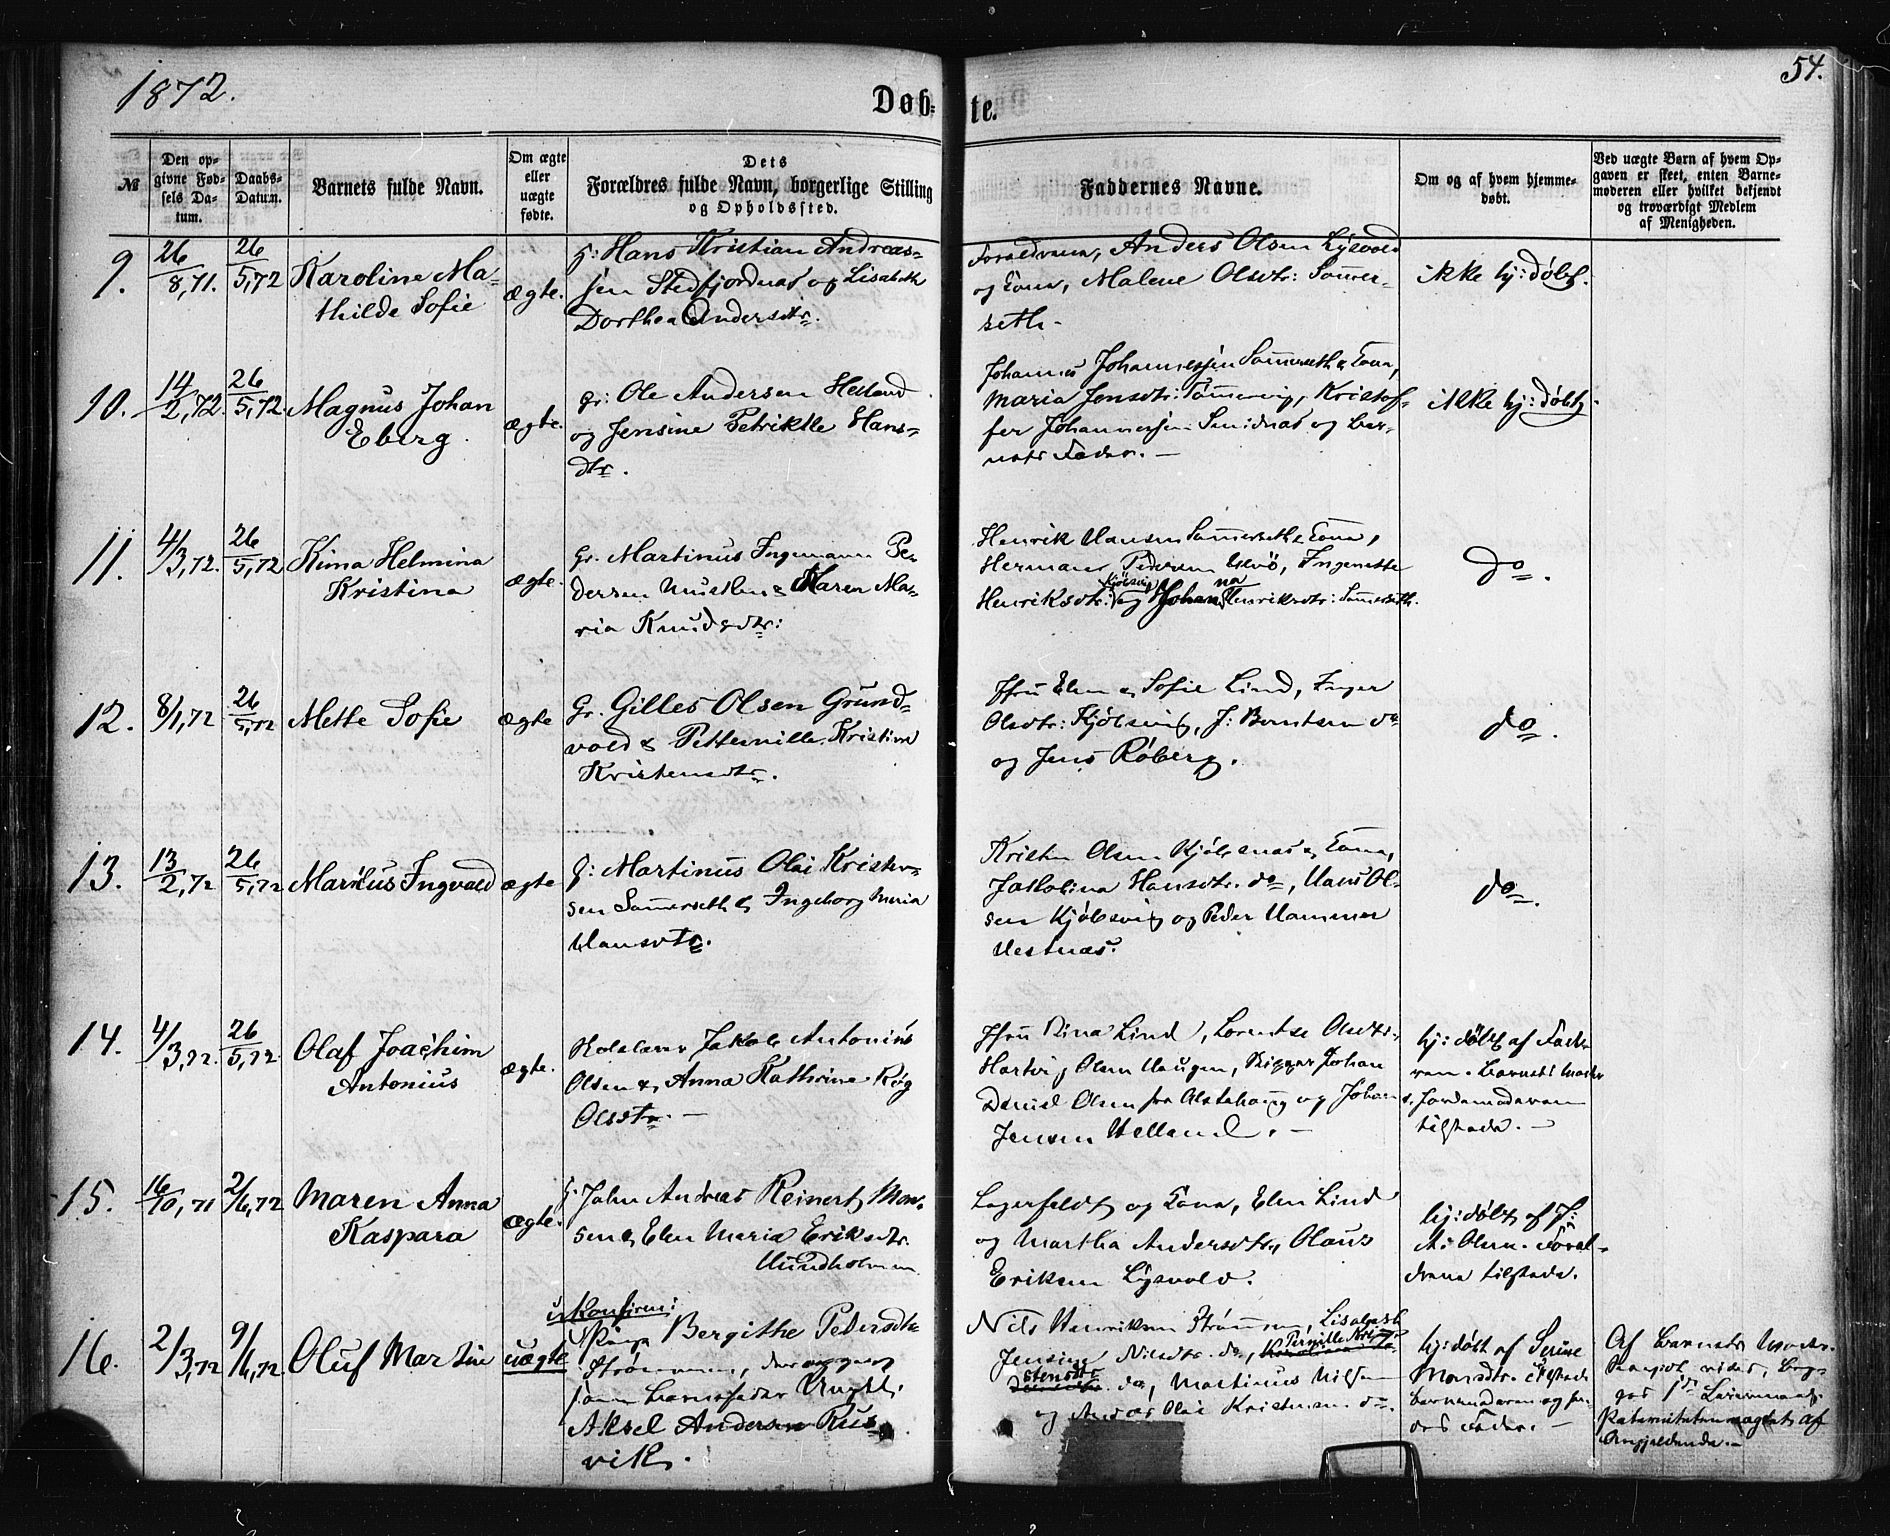 1872.
54.
Døb-
te.
№
Den op-
givne Fød-
sels Da-
tum.
Daabs-
Datum.
Barnets fulde Navn.
Om ægte
eller
uægte
fødte.
Dets
Forældres fulde Navn, borgerlige Stilling
og Opholdssted.
Faddernes Navne.
Om og af hvem hjemme-
døbt.
Ved uægte Børn af hvem Op-
gaven er skeet, enten Barne-
moderen eller hvilket bekjendt
og troværdigt Medlem
af Menigheden.
9.
26/8,71.
26/5,72
Karoline Ma-
thilde Sofie
ægte.
Hans Kristian Andreas-
sen Stedfjordnæs og Lisabeth
Dorthea Andersdtr.
Forældrene, Anders Olsen Lysvold
og Kona, Malene Olsdtr: Sammer-
seth.
ikke hj: døbt.
10.
14/2,72.
26/5,72.
Magnus Johan
Eberg.
ægte.
gr: Ole Andersen Helland
og Jensine Petrikke Hans-
dtr.
Johannes Johannessen Sammerseth & Kona,
Maria Jensdtr: Kristof-
fer Johannessen og Bar-
nets Fader. —
ikke hj: døbt.
11.
4/3,72.
26/5,72
Kima Helmina
Kristina
ægte.
Gr. Martinus Ingemann Pe-
dersen & Karen Ma-
ria Knudsdtr:
Henrik Hansen Sammerseth & Kona,
Herman Pedersen Ingenette
Kjölsvig na
Henriksdtr: og Johan Henriksdtr: Sammerseth.
do.
12.
8/1,72
26/5,72
Mette Sofie
ægte
Gr. Gilles Olsen Grund-
vold & Petternille Kristine
Kristensdtr.
Elen & Sofie Lind, Inger
Olsdtr: Kjölsvig, J: Berntsen do
og Jens Röberg.
do.
13.
13/2,72
26/5,72
Marius Ingvald
ægte
Martinus Olai Kristen-
sen Sammerseth & Ingeborg Maria
Hansdtr.
Kristen Olsen Kjölsnæs & Kona,
Jakobina Hansdtr. do, Hans Ol-
sen Kjölsvig og Peder Hammer
Vestnæs.
do.
14.
4/3,72.
26/5,72
Olaf Joachim
Antonius
ægte.
Jakob Antonius
Olsen & Anna Kathrine Røg
Olsdtr. —
Lind, Lorentse Olsdtr.
Hartvig Olsen Haugen, Johan
Daniel Olsen fra Alstahoug og Johan
Jensen Helland. —
hj: døbt af Fade-
ren. Barnets Moder
& Jordemoderen
tilstede. —
15.
16/10,71
2/6,72
Maren Anna
Kaspara
ægte.
John Andreas Reinert Mon-
sen & Elen Maria Eriksdtr.
Hundholmen
Lagerfeldt og Kona, Elen Lind
og Martha Andersdtr, Olaus
Eriksen Lysvold.
hj: døbt af
Olsen. Foræl-
drene tilstede.
16.
2/3,72
9/6,72
Oluf Martin
uægte
Konfirm:
Pige Bergithe Pedersdtr
Strømmen,
som Barnefader Ungk.
Aksel Andersen Rus-
vik.
Nils Henriksen Strømmen, Lisabeth
Jensine Nilsdtr. do, Pernille Kri-
stensdtr
do, Martinus Nilsen
og Andor Olai Kristensen do.
hj: døbt af Serine
Monsdtr. tilstede
barnemoderen og
Fader. —
Af Barnets Moder.
af